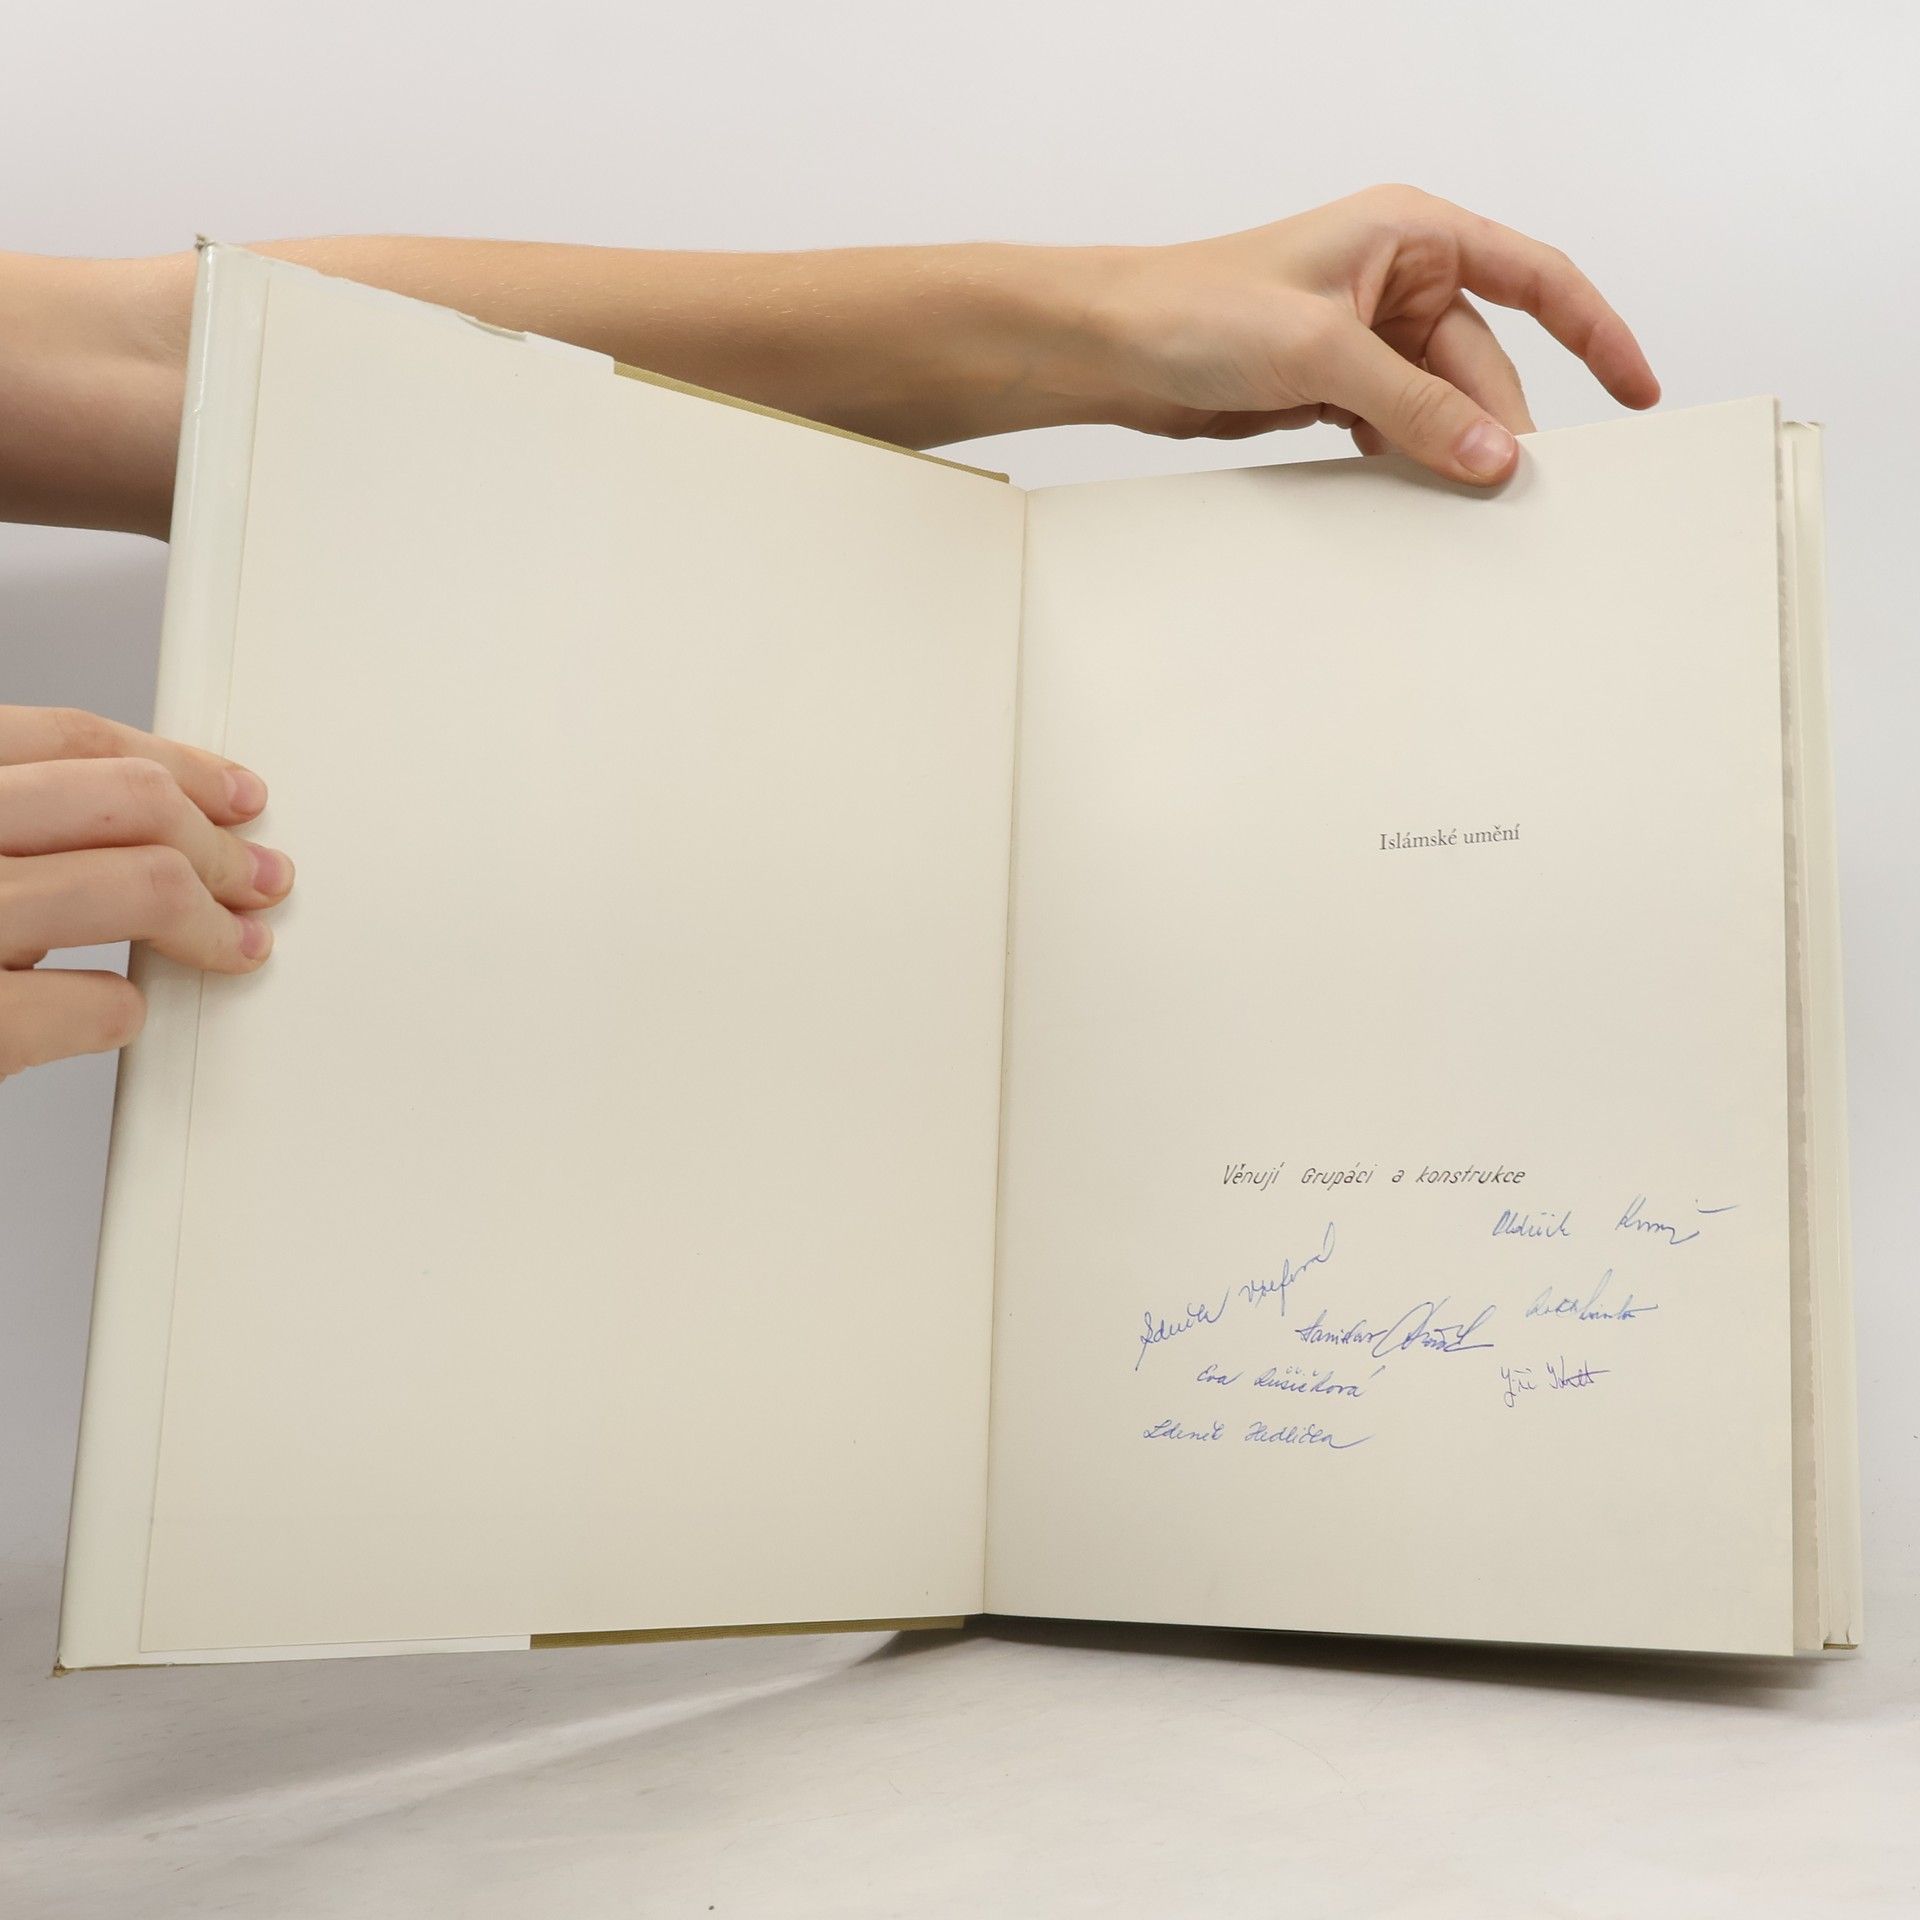 Islámské umění
Věnují Grupáci a konstrukce
Oldřich
Zdeněk
Stanislav
Eva Růžičková
Jiří
Zdeněk Hedlička